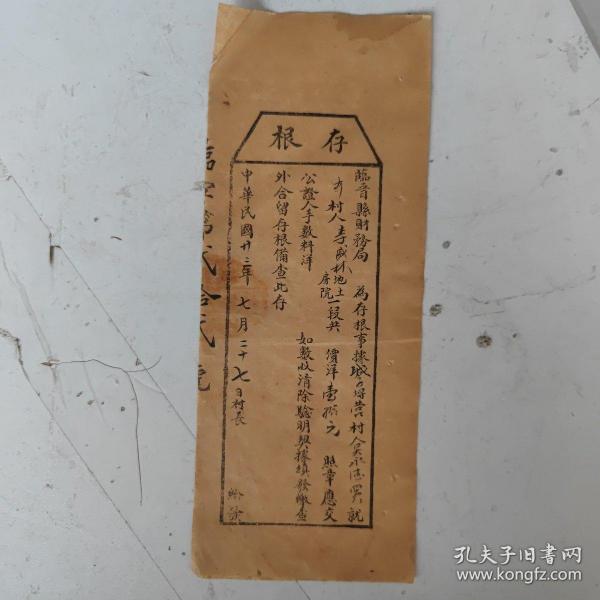 存根
臨晉縣財務局 為存根事據城西營村人永 買就
本村人李盛林地土房院一段共 價洋壹拾元 照章應交
公證人手數料洋 如數收清除驗明契據填發繳查
外合留存根備查此存
中華民國廿三年七月二十七日村長 給發
臨字第弍拾弍號
孔夫子旧书网
www.kongfz.com